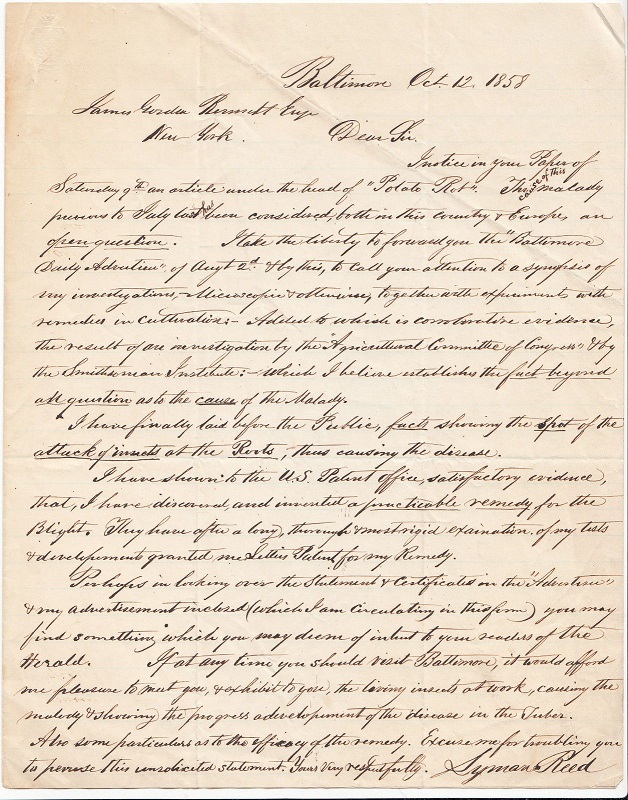 Baltimore Oct. 12, 1858
James Gordon Bennett Esqr
New York. Dear Sir.
I notice in your Paper of
Saturday 9th an article under the head of "Potato Rot". The cause of this malady
previous to July last has been considered, both in this country & Europe, an
open question. I take the liberty to forward you the "Baltimore
Daily Advertiser", of Augt 2d & by this, to call your attention to a synopsis of
my investigations, Microscopic & otherwise, together with experiments with
remedies in cultivation:- Added to which is corroborative evidence,
the result of an investigation by the "Agricultural Committee of Congress" & by
the Smithsonian Institute:- which I believe establishes the fact beyond
all question as to the cause of the Malady.
I have finally laid before the Public, facts showing the spot of the
attack of insects at the Roots, thus causing the disease.
I have shown to the U.S. Patent office, satisfactory evidence,
that, I have discovered and invented a practicable remedy for the
Blight. They have after a long, through & most rigid exaination of my tests
& developements granted me Letters Patent for my Remedy.
Perhaps in looking over the Statement & Certificates in the "Advertiser"
& my advertisement inclosed (which I am circulating in this form) you may
find something, which you may deem of intent to your readers of the
Herald. If at any time you should visit Baltimore, it would afford
me pleasure to meet you, & exhibit to you, the living insects at work, causing the
malody & showing the progress & developement of the disease in the Tuber.
Also some particulars as to the efficacy of the remedy. Excuse me for troubling you
to peruse this unsolicited statement. Yours very respectfully. Lyman Reed